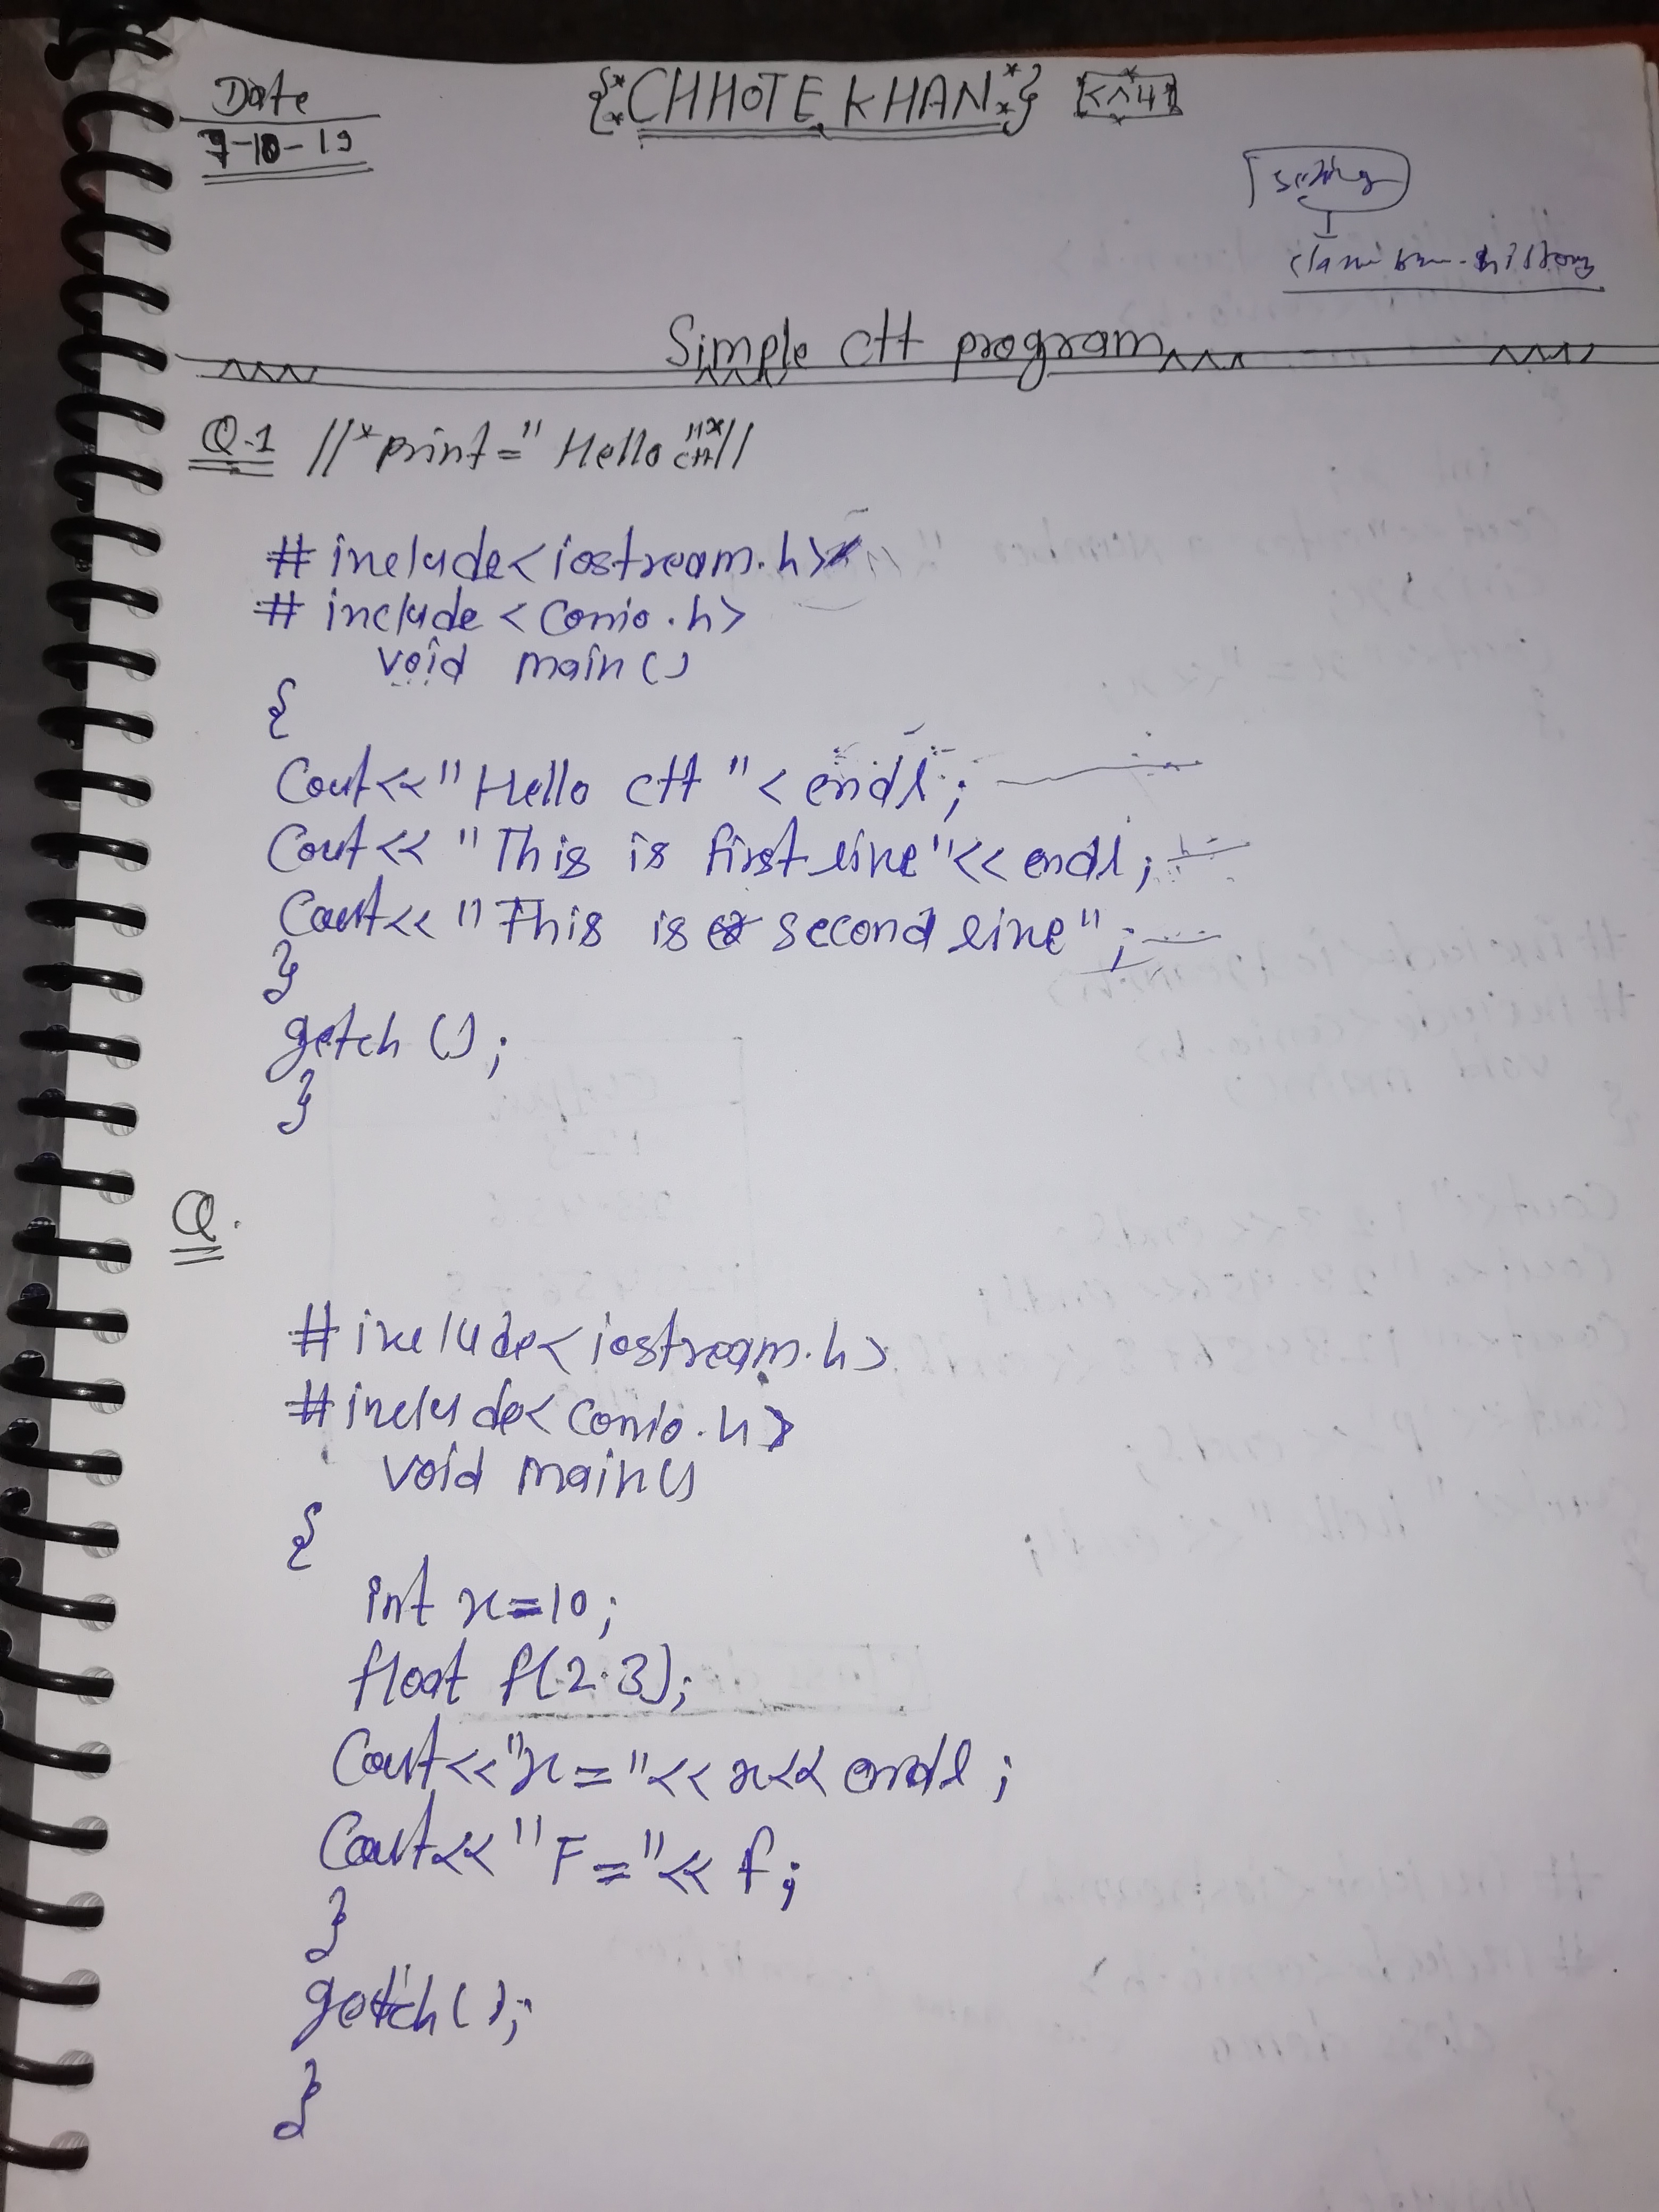 Date
7-10-19
{* CHHOTE KHAN *}
setting
Simple C++ program
Q.1 //* print = "Hello C++" *//
# include<iostream.h>
# include <conio.h>
void main()
{
Cout<<"Hello c++ "< endl;
Cout<< "This is first line"<< endl;
Cout<< "This is second line";
}
getch ();
}
Q.
# include<iostream.h>
# include<conio.h>
void main()
{
int x=10;
float f(2.3);
Cout<<"x="<< x<< endl;
Cout<< "F="<< f;
}
getch();
}